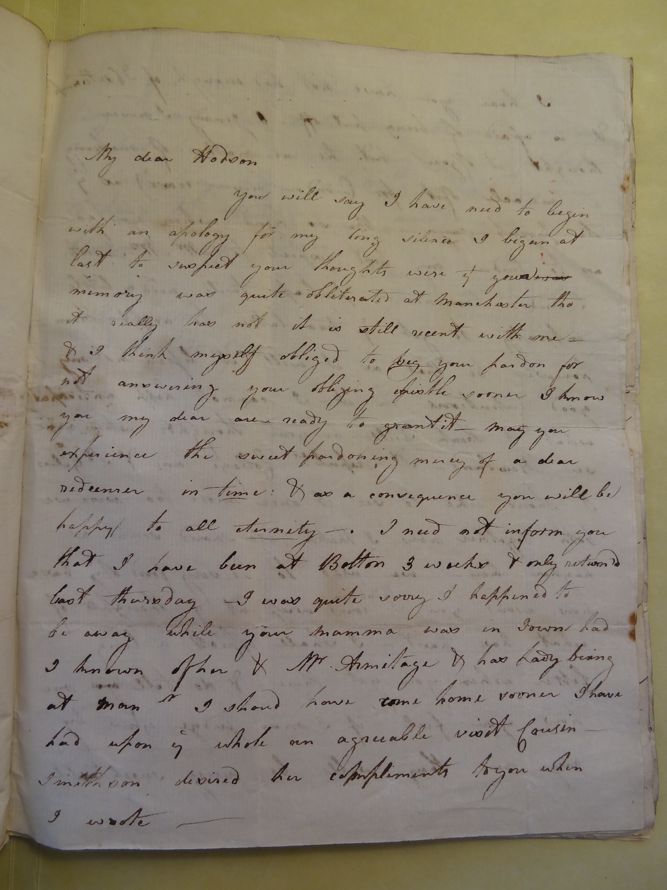 My dear Hodson
you will say I have need to begin
with an apology for my long silence I began at
last to suspect your thoughts were if your
memory was quite obliterated at Manchester tho
it really has not it is still recent with me -
& I think myself obliged to beg your pardon for
not answering your obliging Epistle sooner I know
you my dear are ready to grant it - may you
experience the sweet pardoning mercy of a dear
redeemer in time: & as a consequence you will be
happy to all eternity -. I need not inform you
that I have been at Bolton 3 weeks & only return'd
last thursday - I was quite sorry I happened to
be away while your mamma was in Town had
I known of her & Mr. Armitage & has lady being
at Manr I shoud have come home sooner I have
had upon ye whole an agreeable visit Cousin -
Smithson desired her compliments to you when
I wrote -